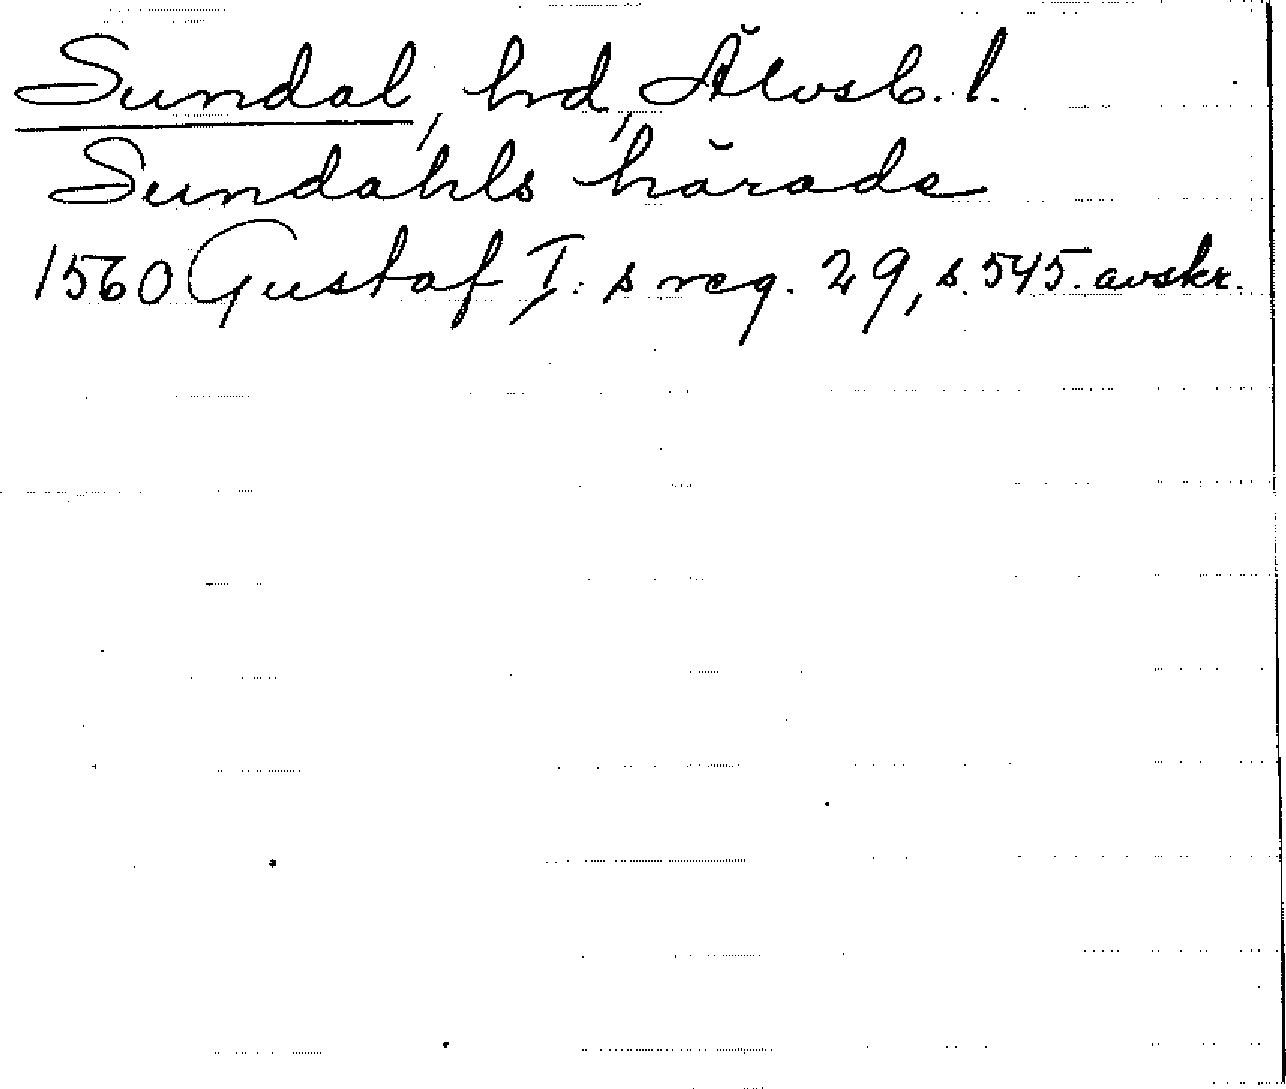 Sundal, hd, Älvsb. l.
Sundahls härade
1560 Gustaf I:s reg. 29, s. 545. avskr.